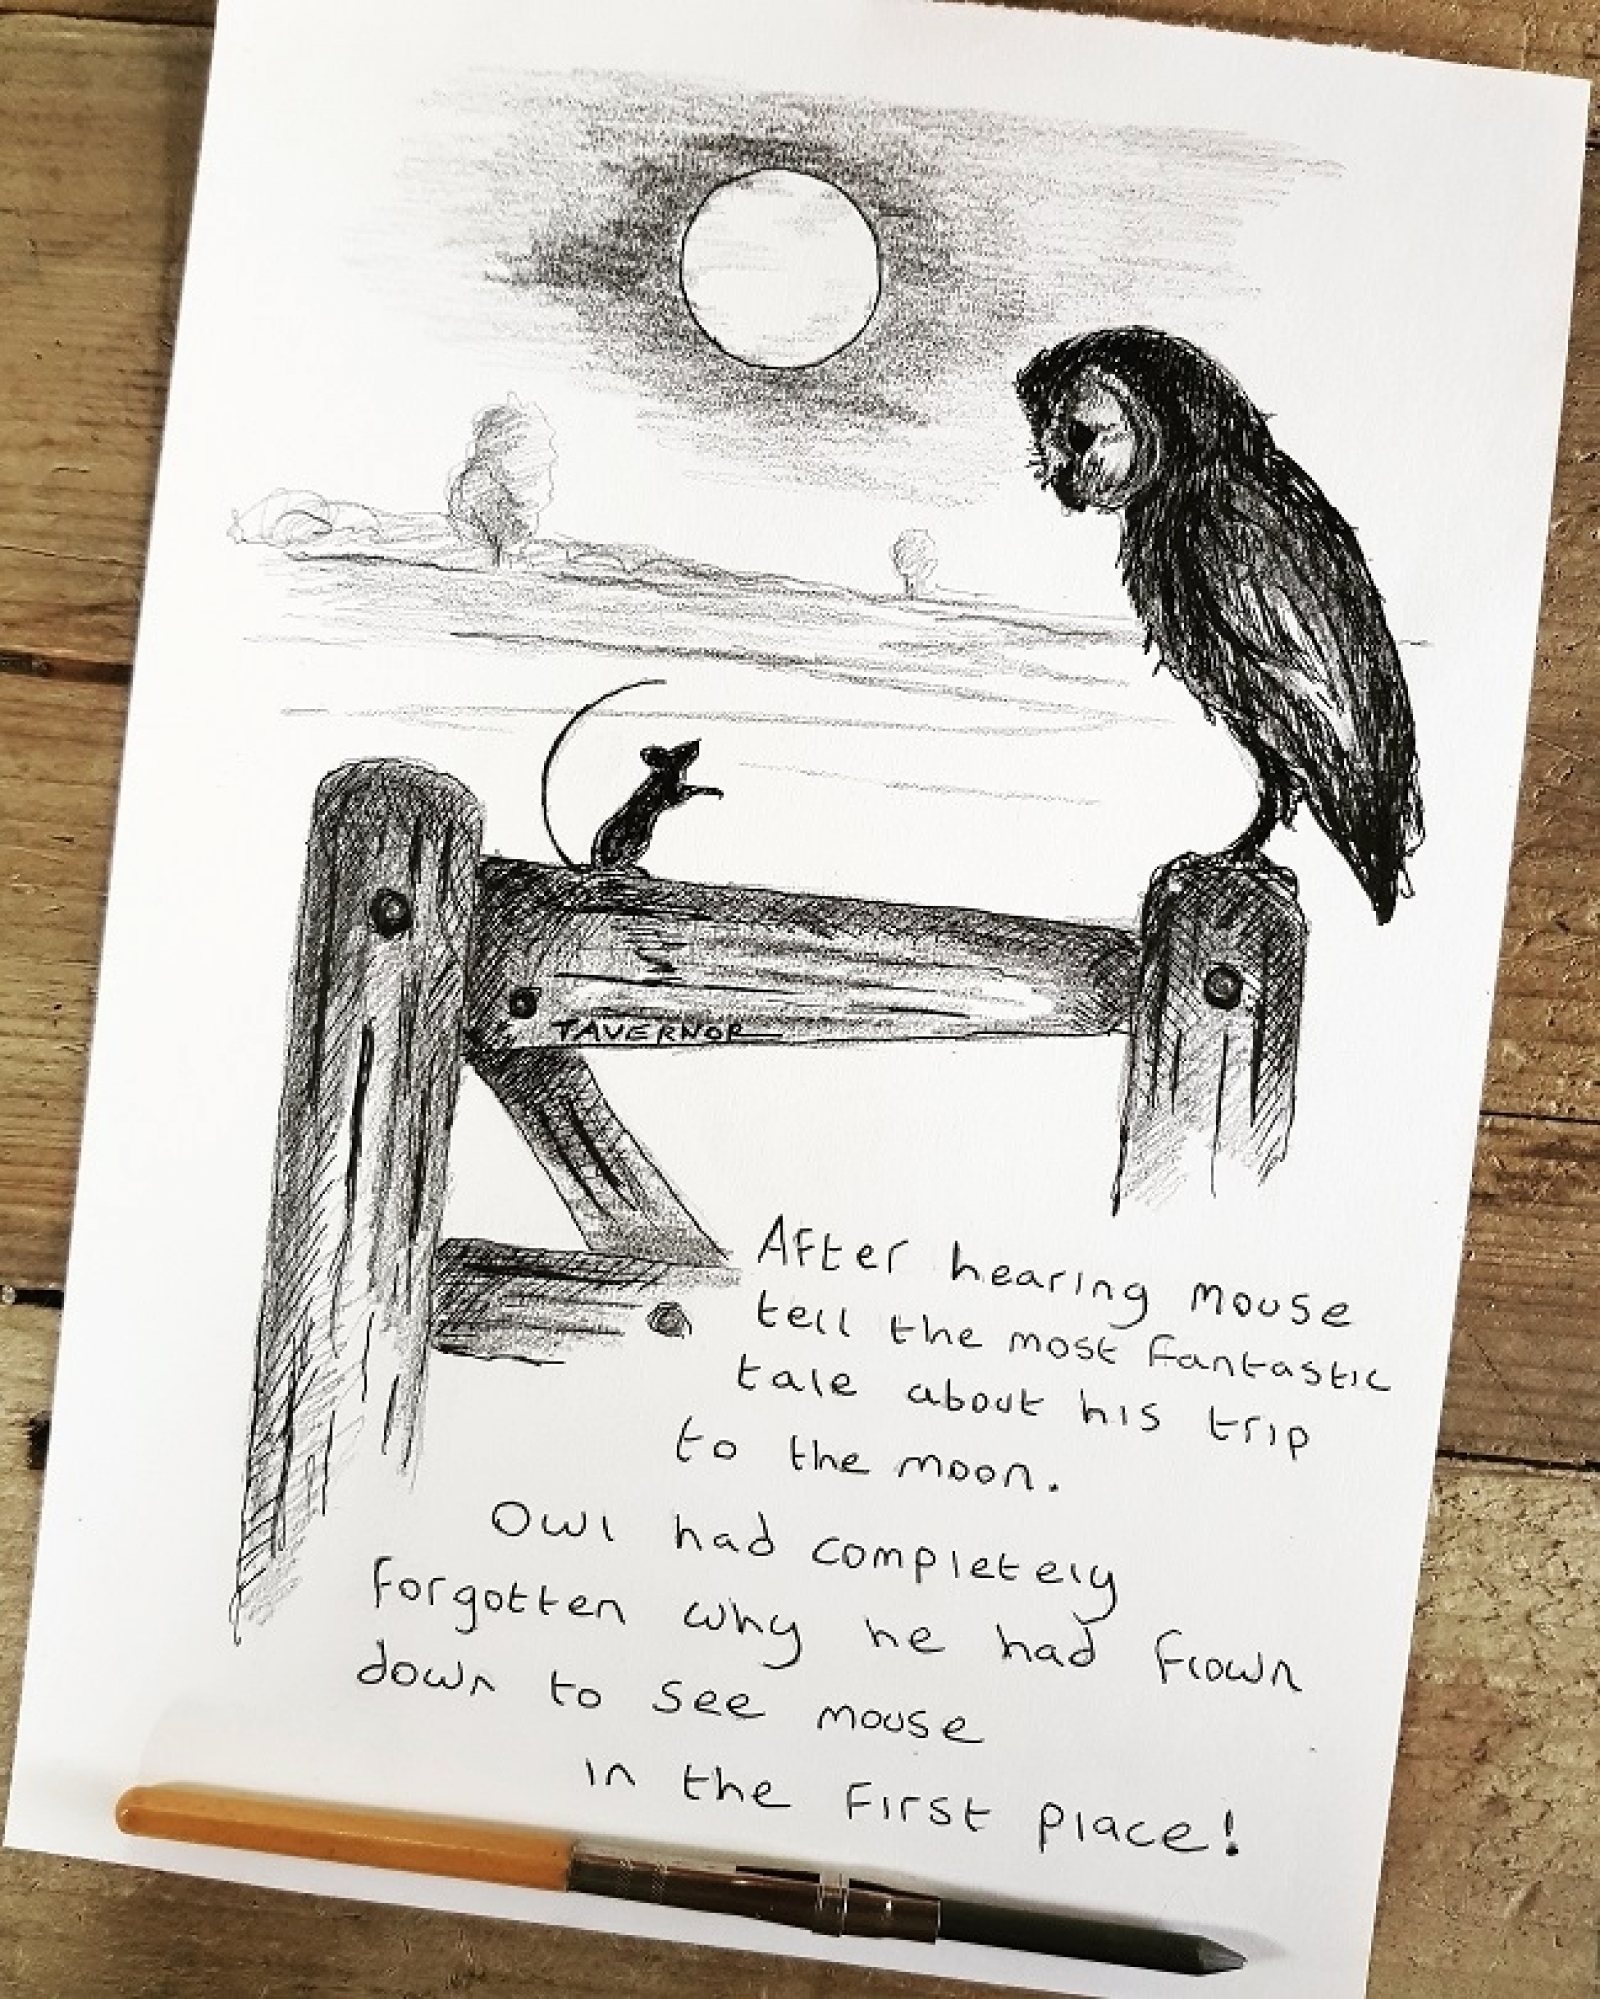 TAVERNOR
After hearing mouse
tell the most fantastic
tale about his trip
to the moon.
Owl had completely
forgotten why he had flown
down to see mouse
in the first place!